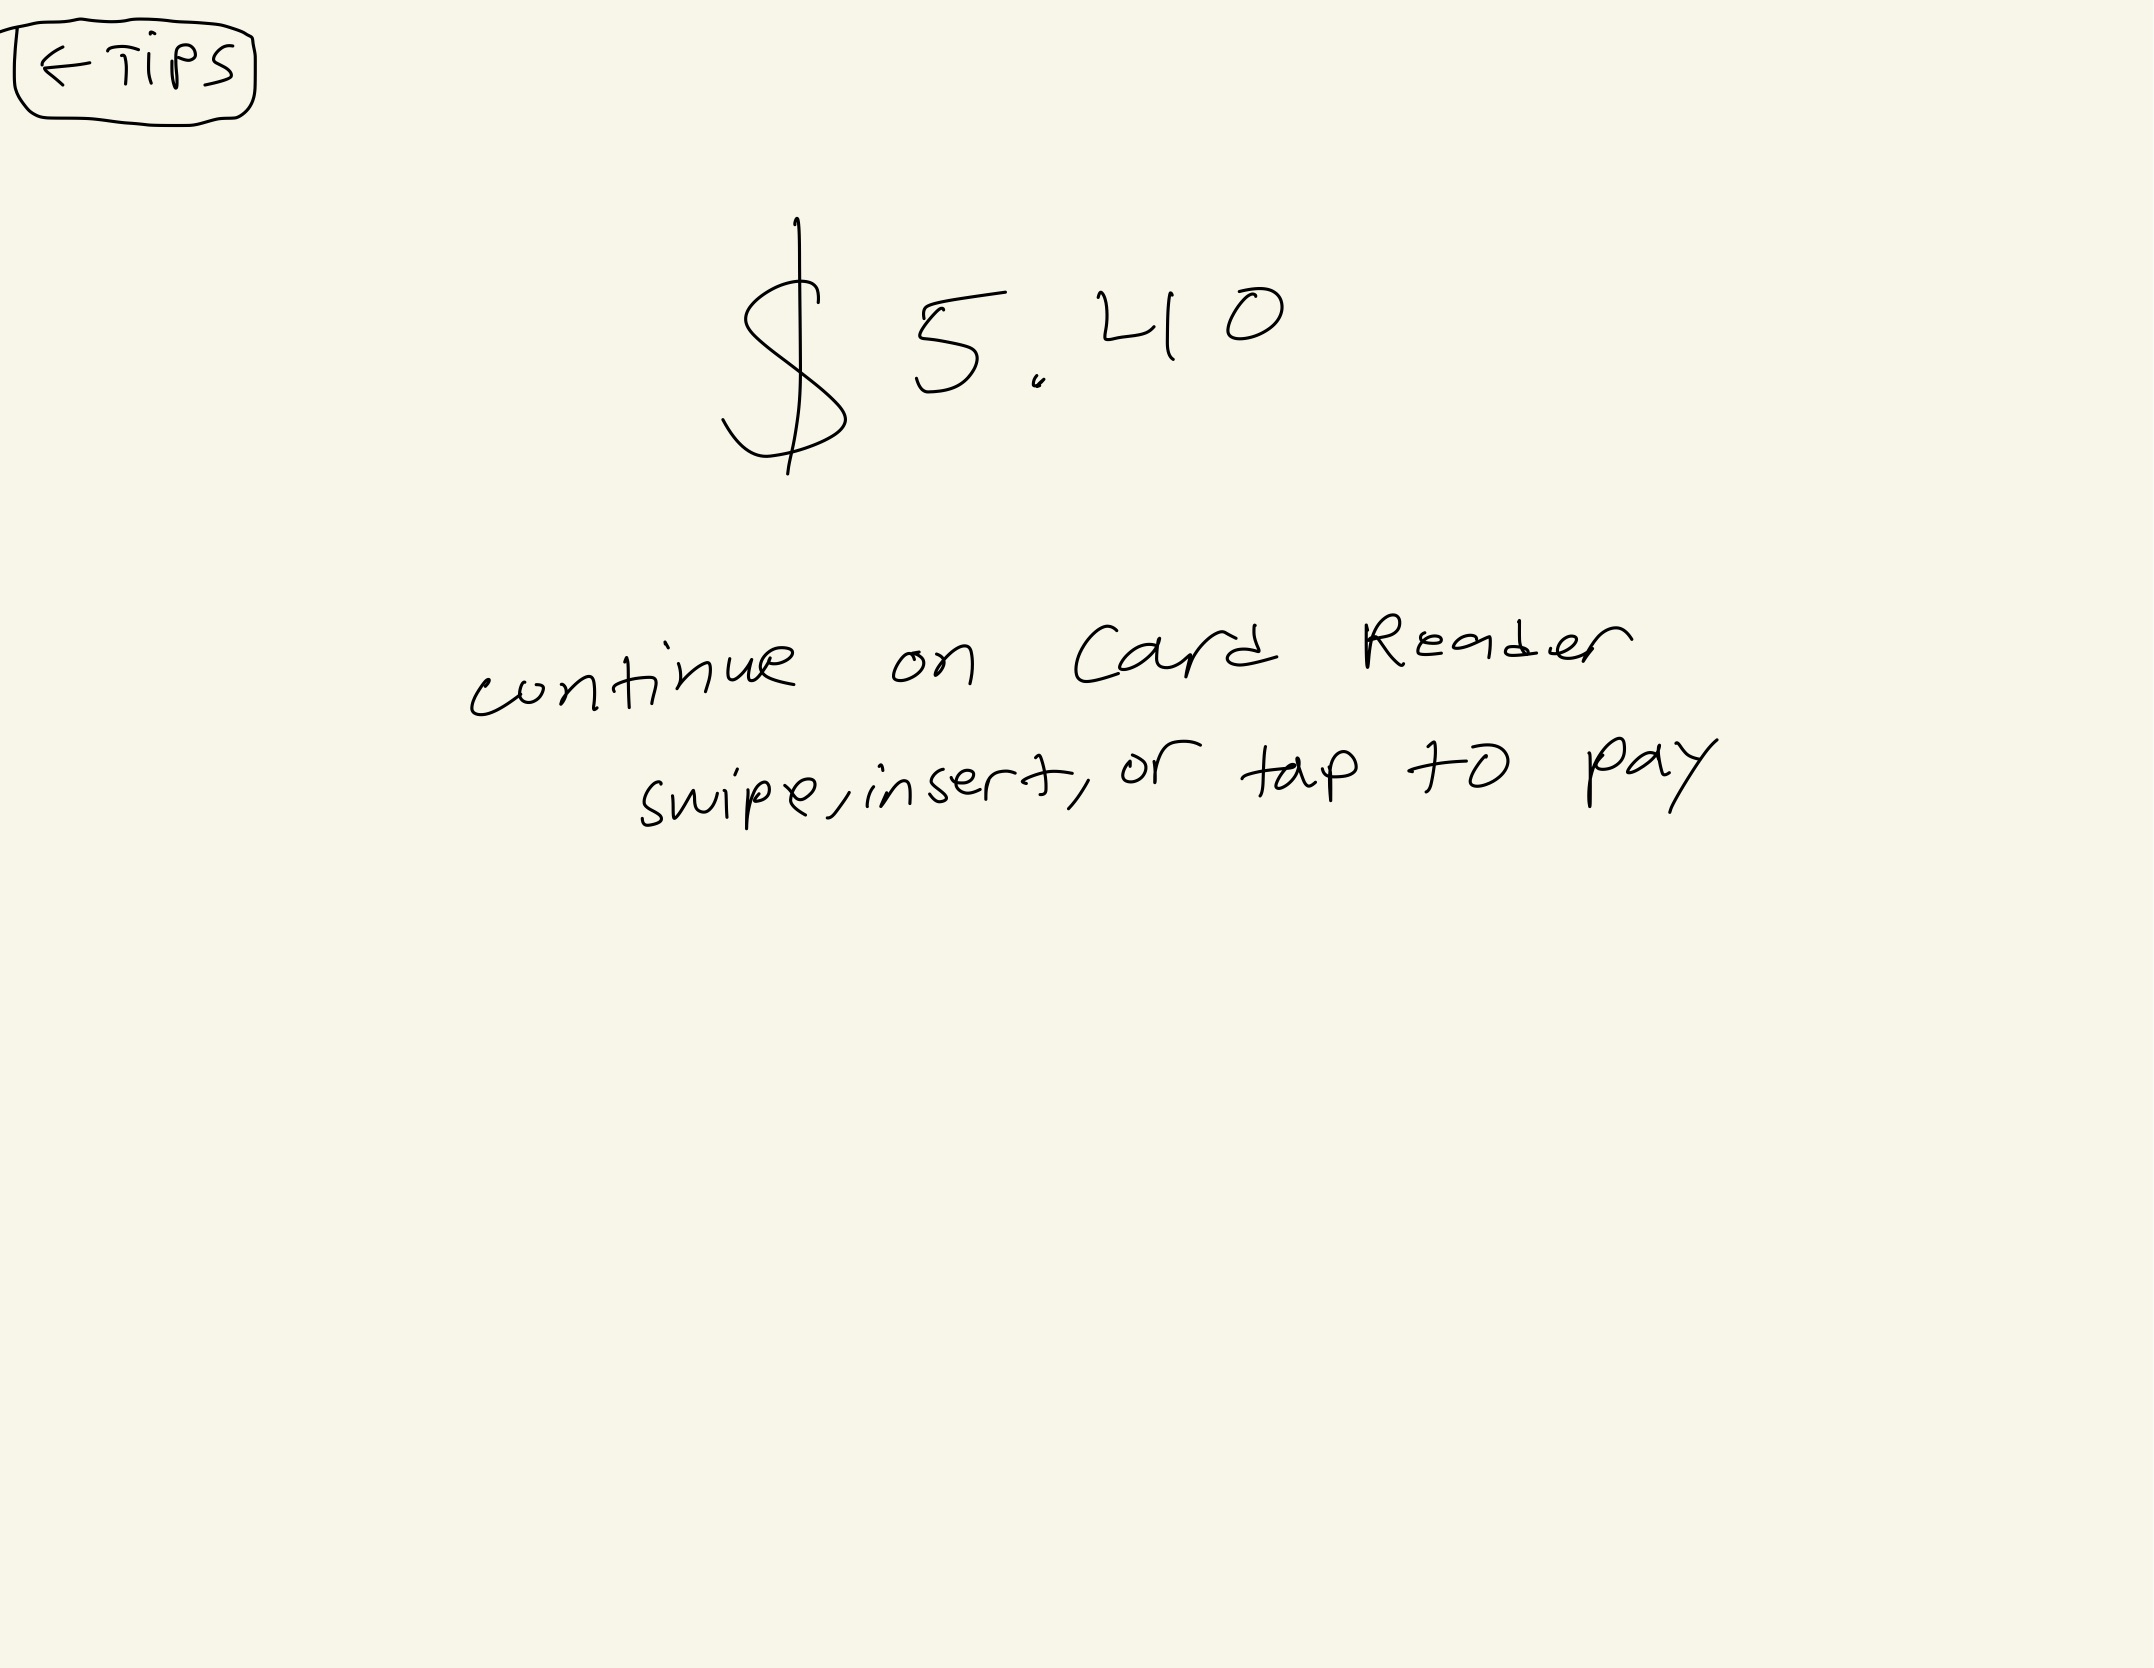 ← Tips
$ 5.40
continue on Card Reader
swipe, insert, or tap to pay